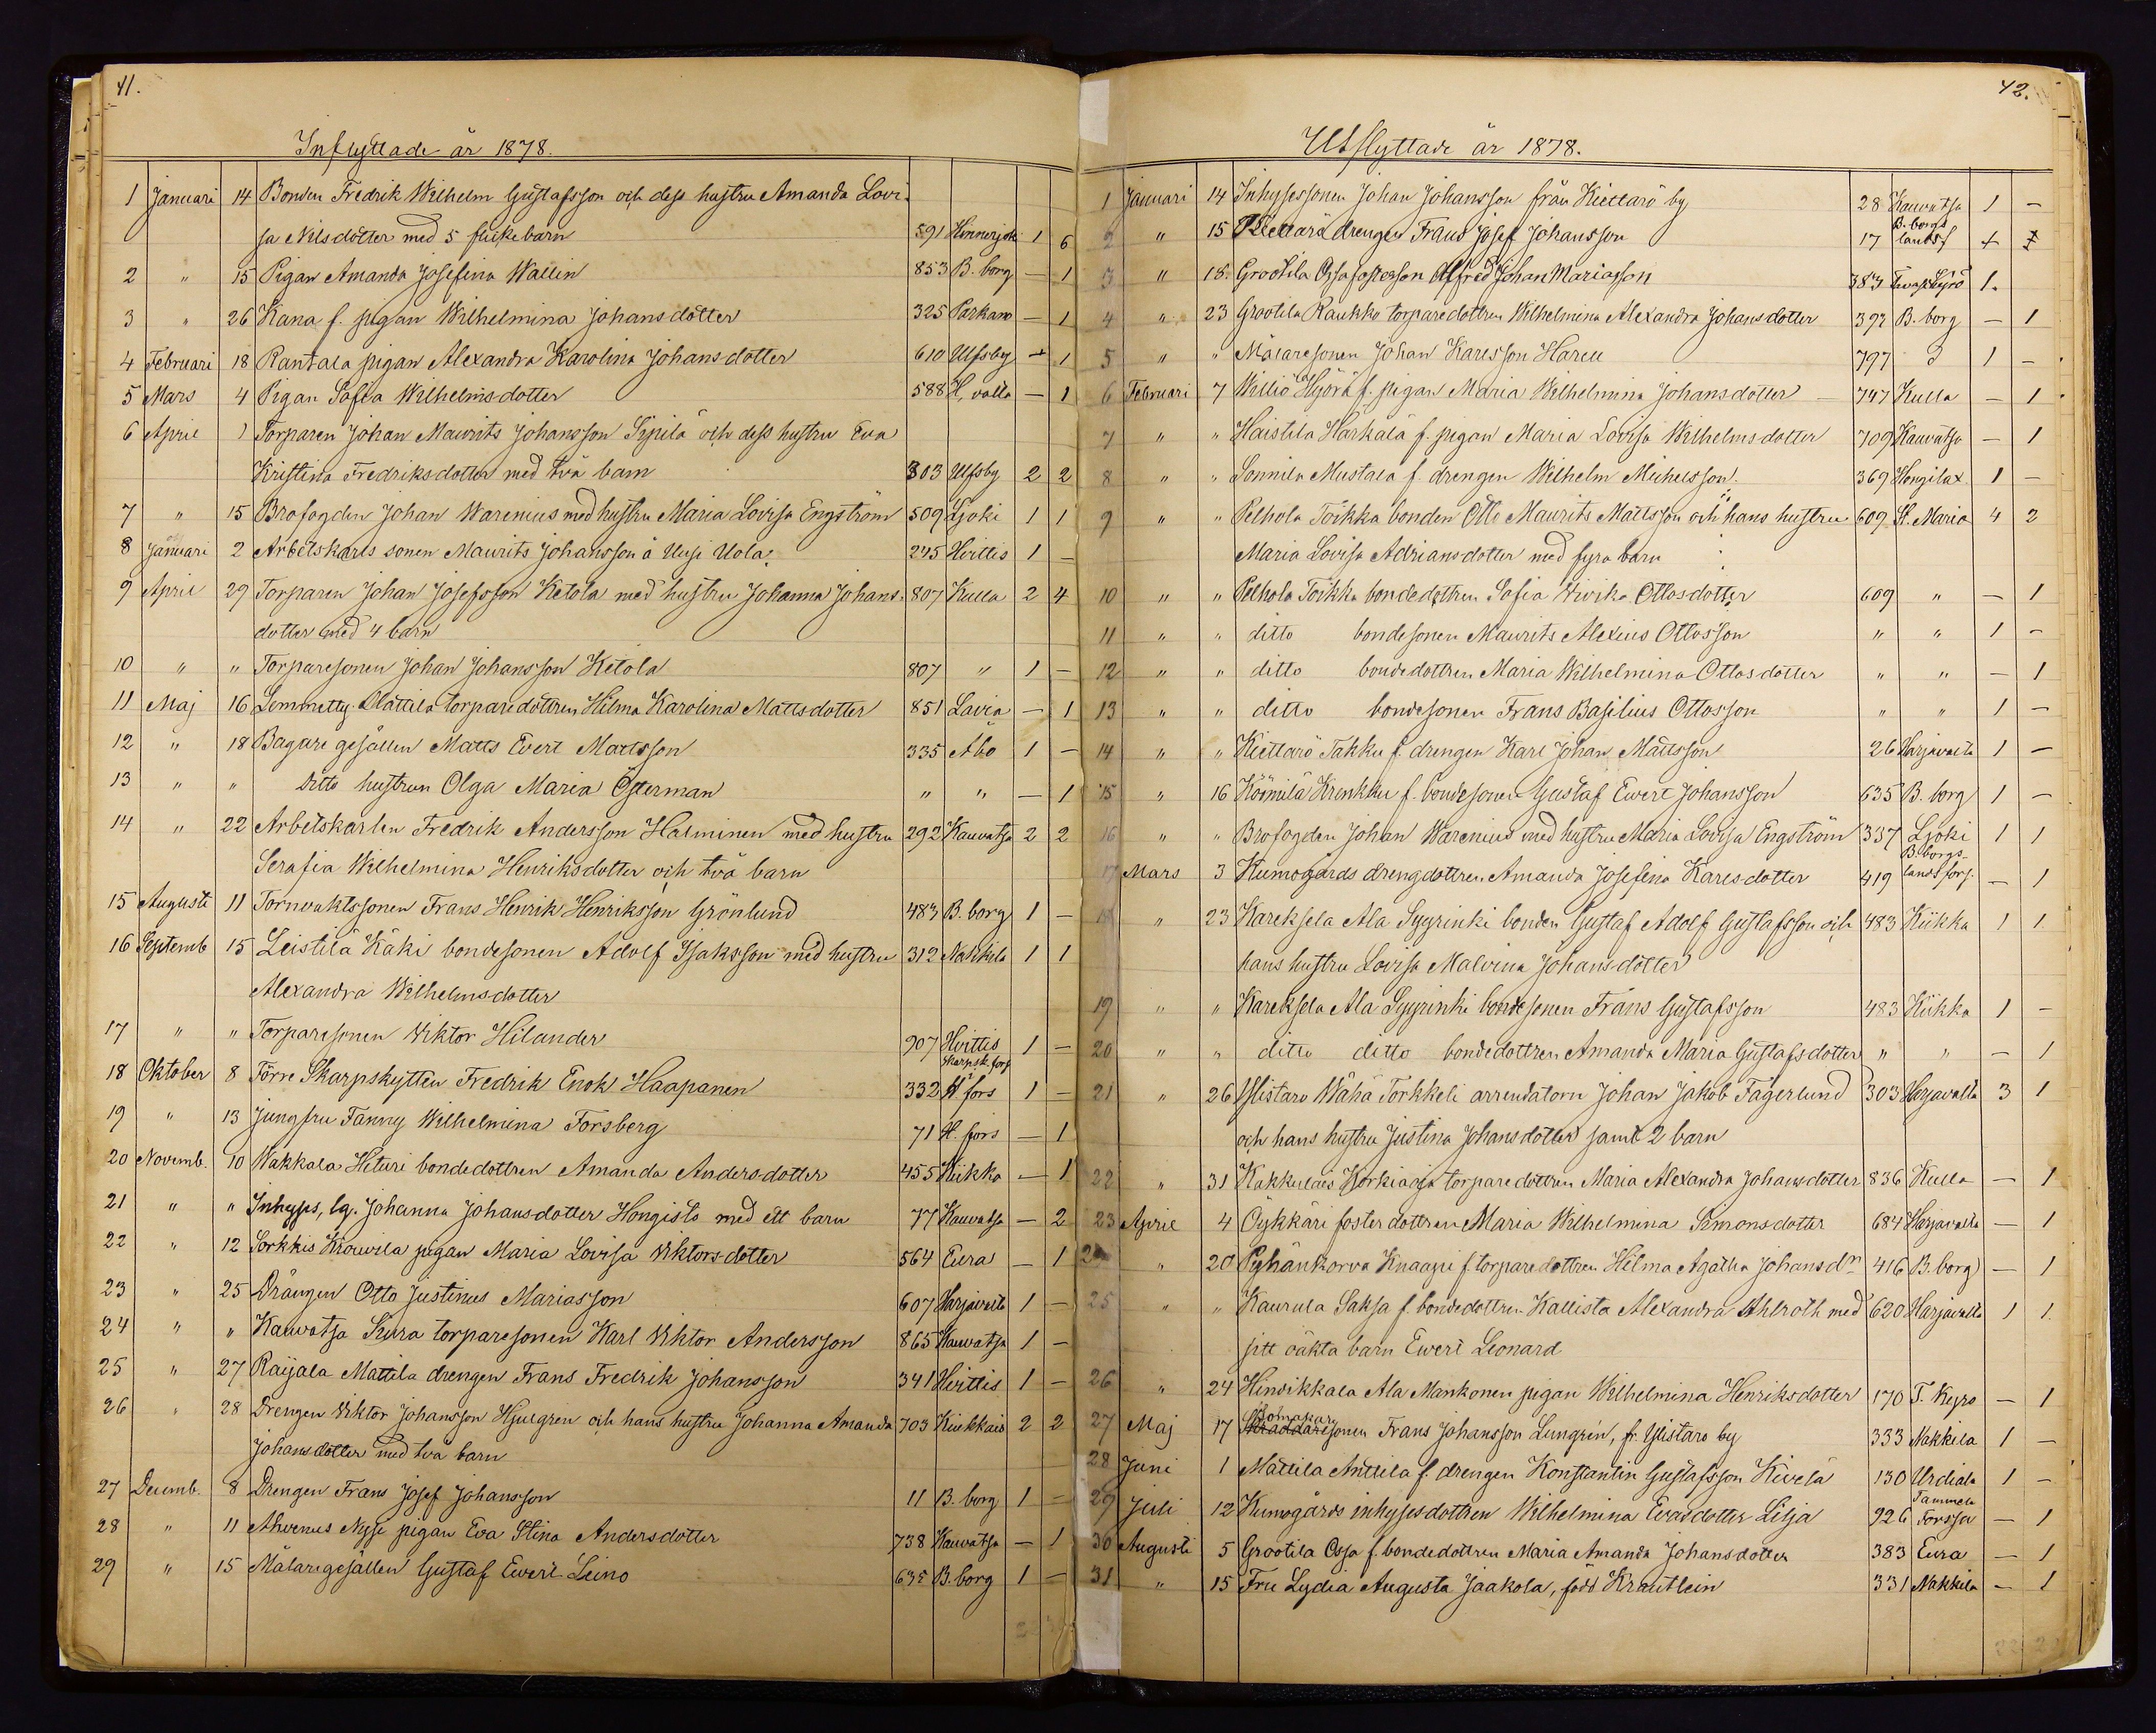 41.
Inflyttade år 1878.
1 Januari 14 Bonden Fredrik Wilhelm Gustafsson och dess hustru Amanda Lovi-
sa Nilsdotter med 5 flickebarn 591 Honnerjoki 1 6
2 " 15 Pigan Amanda Josefina Wallin 853 B. borg — 1
3 " 26 Kana f. pigan Wilhelmina Johansdotter 325 Parkano — 1
4 Februari 18 Rantala pigan Alexandra Karolina Johansdotter 610 Ulfsby — 1
5 Mars 4 Pigan Sofia Wilhelmsdotter 588 H, valta — 1
6 April 1 Torparen Johan Maurits Johansson Sipilä och dess hustru Eva
Kristina Fredriksdotter med två barn 803 Ulfsby 2 2
7 " 15 Brofogden Johan Warenius med hustru Maria Lovisa Engström 509 Ljoki 1 1
8 Januari 2 Arbetskarls sonen Maurits Johansson å Uusi Uola. 245 Hvittis 1 —
9 April 29 Torparen Johan Josefsson Ketola med hustru Johanna Johans- 807 Kulla 2 4
dotter med 4 barn
10 " " Torparesonen Johan Johansson Ketola 807 " 1 —
11 Maj 16 Lemmetty Mattila torparedottren Hilma Karolina Mattsdotter 851 Lavia — 1
12 " 18 Bagare gesällen Matts Evert Mattsson 335 Åbo 1 —
13 " " ditto hustrun Olga Maria Österman " " — 1
14 " 22 Arbetskarlen Fredrik Andersson Halminen med hustru 292 Kauvatsa 2 2
Serafia Wilhelmina Henriksdotter och två barn
15 Augusti 11 Tornvaktssonen Frans Henrik Henriksson Grönlund 483 B. borg 1 —
16 Septemb 15 Leistilä Käki bondesonen Adolf Isaksson med hustru 312 Nakkila 1 1
Alexandra Wilhelmsdotter
17 " " Torparesonen Viktor Hilander 907 Hvittis 1 —
18 Oktober 8 Förre Skarpskytten Fredrik Enok Haapanen 332 Skarpsk. förs i H fors 1 —
19 " 13 Jungfru Fanny Wilhelmina Forsberg 71 H. fors — 1
20 Novemb. 10 Wakkala Hituri bondedottren Amanda Andersdotter 455 Kiikka — 1
21 " " Inhyses, lg. Johanna Johansdotter Hongisto med ett barn 77 Kauvatsa — 2
22 " 12 Sorkkis Krouvila pigan Maria Lovisa Viktorsdotter 564 Eura — 1
23 " 25 Drängen Otto Justinus Mariasson 607 Harjavalta 1 —
24 " " Kauvatsa Sura torparesonen Karl Viktor Andersson 865 Kauvatsa 1 —
25 " 27 Raijala Mattila drengen Frans Fredrik Johansson 341 Hvittis 1 —
26 " 28 Drengen Viktor Johansson Hjulgren och hans hustru Johanna Amanda 703 Kiukkais 2 2
Johansdotter med två barn
27 Decemb. 8 Drengen Frans Josef Johansson 11 B. borg 1 —
28 " 11 Ahvenus Nyse pigan Eva Stina Andersdotter 738 Kauvatsa — 1
29 " 15 Målaregesällen Gustaf Evert Leino 635 B. borg 1 —
42.
Utflyttade år 1878.
1 Januari 14 Inhysessonen Johan Johansson från Kiettarö by 28 Kauvatsa 1 —
2 " 15 Kiettarä drengen Frans Josef Johansson 17 B. borgs landsf
3 " 18. Grootila Ossa fosterson Alfred Johan Mariasson 383 Tavastkyrö 1.
4 " 23 Grootila Raukko torparedottren Wilhelmina Alexandra Johansdotter 392 B. borg — 1
5 " " Målaresonen Johan Karlsson Harell 797 " 1 —
6 Februari 7 Williö Hyörä f. pigan Maria Wilhelmina Johansdotter 747 Kulla — 1
7 " " Haistila Harkälä f. pigan Maria Lovisa Wilhelmsdotter 709 Kauvatsa — 1
8 " " Sonnila Mustala f. drengen Wilhelm Mickelsson 369 Hongilax 1 —
9 " " Pelhola Töikkä bonden Otto Maurits Mattsson och hans hustru 609 St. Maria 4 2
Maria Lovisa Adriansdotter med fyra barn
10 " " Pelhola Töikkä bondedottren Sofia Vivika Ottosdotter 609 " — 1
11 " " ditto bondesonen Maurits Alexius Ottosson " " 1 —
12 " " ditto bondedottren Maria Wilhelmina Ottosdotter " " — 1
13 " " ditto bondesonen Frans Basilius Ottosson " " 1 —
14 " " Kiettarö Takku f. drengen Karl Johan Mattsson 26 Harjavalta 1 —
15 " 16 Kömilä Krenkku f. bondesonen Gustaf Evert Johansson 635 B. borg 1 —
16 " " Brofogden Johan Warenius med hustru Maria Lovisa Engström 337 Ljoki 1 1
17 Mars 3 Kumogårds drengdottren Amanda Josefina Karlsdotter 419 B. borgs- lands förs. — 1
18 " 23 Kareksela Ala Syyrinki bonden Gustaf Adolf Gustafsson och 483 Kiikka 1 1
hans hustru Lovisa Malvina Johansdotter
19 " " Kareksela Ala Syyrinki bondesonen Frans Gustafsson 483 Kiikka 1 —
20 " " ditto ditto bondedottren Amanda Maria Gustafsdotter " " — 1
21 " 26 Ylistaro Wähä Torkkeli arrendatorn Johan Jakob Fagerlund 303 Harjavalta 3 1
och hans hustru Justina Johansdotter samt 2 barn
22 " 31 Kakkulais Korkiaoja torparedottren Maria Alexandra Johansdotter 836 Kulla — 1
23 April 4 Öykkäri fosterdottren Maria Wilhelmina Simonsdotter 684 Harjavalta — 1
24 " 20 Pyhänkorva Knaapi f torparedottren Hilma Agatha Johansdn 416 B. borg — 1
25 " " Kaurula Saksa f. bondedottren Kallista Alexandra Ahlroth med 620 Harjavalta 1 1
sitt oäkta barn Evert Leonard
26 " 24 Hinrikkala Ala Mankonen pigan Wilhelmina Henriksdotter 170 T. Kyro — 1
27 Maj 17 Skräddaresonen Frans Johansson Lungrén, fr. Ylistaro by 333 Nakkila 1 —
28 Juni 1 Mattila Anttila f. drengen Konstantin Gustafsson Kivelä 130 Urdiala 1 —
29 Juli 12 Kumogårds inhysesdottren Wilhelmina Evasdotter Lilja 926 Tammela Forssa — 1
30 Augusti 5 Grootila Ossa f. bondedottren Maria Amanda Johansdotter 383 Eura — 1
31 " 15 Fru Lydia Augusta Jaakola, född Krautlein 331 Nakkila — 1